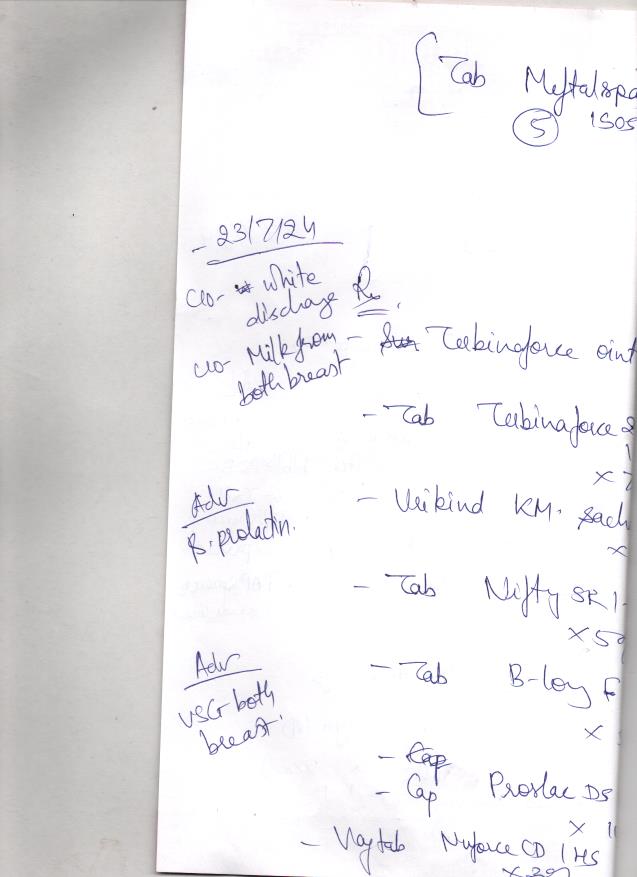 Tab Meftalspa
5 ISOS
- 23/7/24
C/O - White
discharge Rx
C/O - Milk from
both breast
- Terbinaforce oint
- Tab Terbinaforce
x 7
Adv
S. prolactin.
- Urikind KM. Sach
x
- Tab Nifty SR 1-
x 5
Adv
USG both
breast.
- Tab B-long F
x
- Cap
- Cap Proslac DS
x 1
- Vagtab Nuforce CD 1 HS
x 3